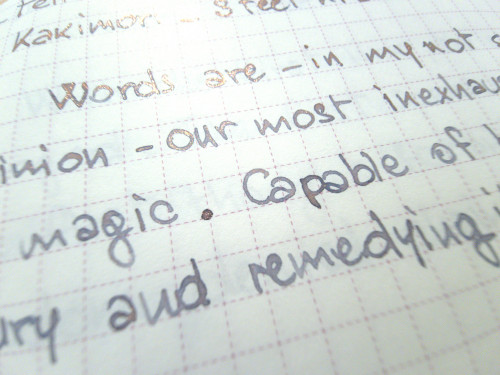 Kakimori
Words are - in my not s
inion - our most inexhaus
magic. Capable of
ury and remedying